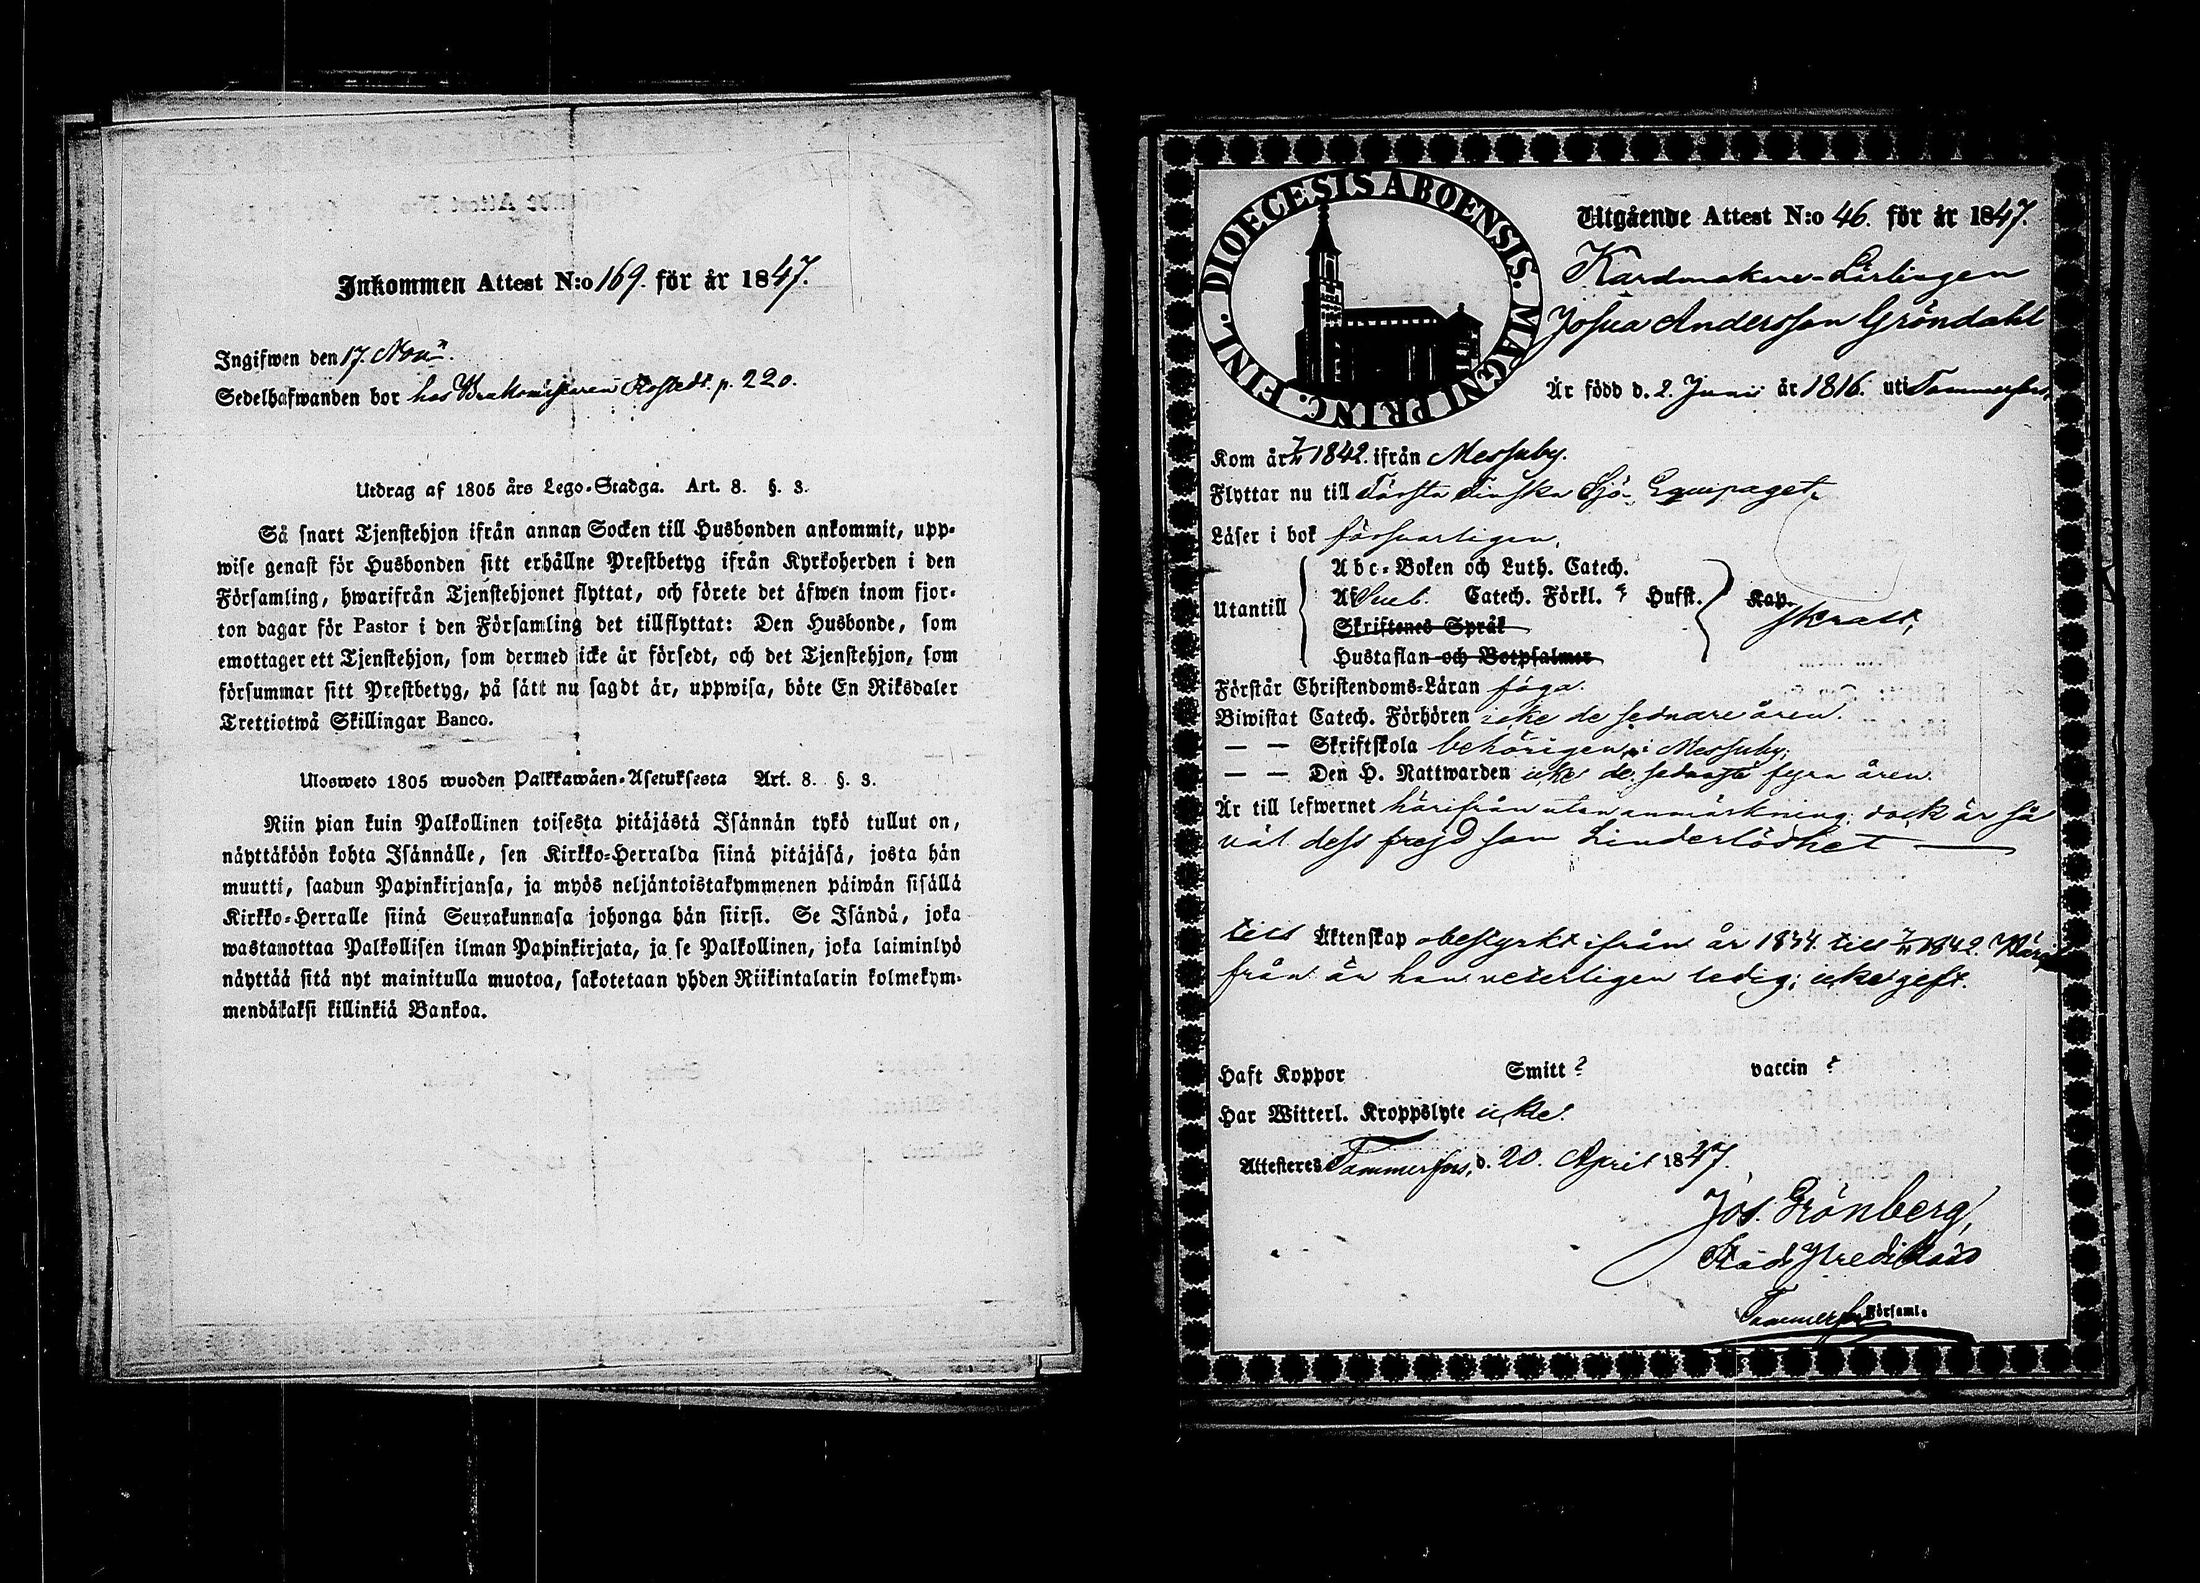 Inkommen Attest N:o 169. för år 1847.
Ingifwen den 17. Nov.
Sedelhafwanden bor hos p. 220.
Utdrag af 1805 års Lego-Stadga. Art. 8. §. 3.
Så snart Tjenstehjon ifrån annan Socken till Husbonden ankommit, upp-
wise genast för Husbonden sitt erhållne Prestbetyg ifrån Kyrkoherden i den
Församling, hwarifrån Tjenstehjonet flyttat, och förete det äfwen inom fjor-
ton dagar för Pastor i den Församling det tillflyttat: Den Husbonde, som
emottager ett Tjenstehjon, som dermed icke är försedt, och det Tjenstehjon, som
försummar sitt Prestbetyg, på sätt nu sagdt är, uppwisa, böte En Riksdaler
Trettiotwå Skillingar Banco.
Ulosweto 1805 wuoden Palkkawäen-Asetuksesta Art. 8. §. 3.
Niin pian kuin Palkollinen toisesta pitäjästä Isännän tykö tullut on,
näyttäköön kohta Isännälle, sen Kirkko-Herralda siinä pitäjäsä, josta hän
muutti, saadun Papinkirjansa, ja myös neljäntoistakymmenen päiwän sisällä
Kirkko-Herralle siinä Seurakunnasa johonga hän siirsi. Se Isändä, joka
wastanottaa Palkollisen ilman Papinkirjata, ja se Palkollinen, joka laiminlyö
näyttää sitä nyt mainitulla muotoa, sakotetaan yhden Riikintalarin kolmekym-
mendäkaksi killinkiä Bankoa.
DIOECESIS ABOENSIS. MAGNI PRINC. FINL.
Utgående Attest N:o 46. för år 1847.
Kardmakare-Lärlingen
Josua Andersson Gröndahl
Är född d. 2. Junii år 1816. uti Tammerfors,
Kom år 1842. ifrån Messuby.
Flyttar nu till Första Finska Sjö-Equipaget.
Läser i bok försvarligen,
Abc-Boken och Luth. Catech.
Utantill Af Sueb. Catech. Förkl. Hufst. Kap. skralt,
Skriftenes Språk
Hustaflan och Botpsalmer
Förstår Christendoms-Läran föga.
Biwistat Catech. Förhören icke de sednare åren.
— — Skriftskola behörigen i Messuby;
— — Den H. Nattwarden icke de sednaste fyra åren.
Är till lefwernet härifrån utan anmärkning; dock är så
väl dess frejd som hinderlöshet —
till Äktenskap obestyrkt ifrån år 1834. till 1842. Här
från är han veterligen ledig; icke gift.
Haft Koppor Smitt ? vaccin ?
Har Witterl. Kroppslyte icke.
Attesteres Tammerfors, d. 20. April 1847.
Jos. Grönberg,
Stads Predikant
Tammerfors Församl.